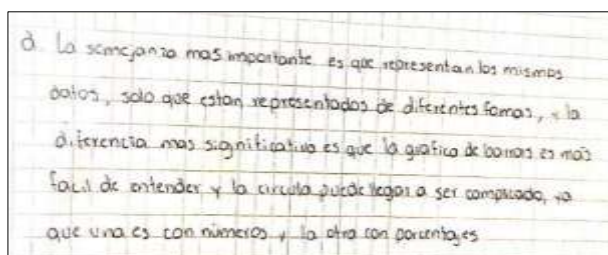 d. La semejanza mas importante es que representan los mismos
datos, solo que estan representados de diferentes formas, y la
diferencia mas significativa es que la grafica de barras es mas
facil de entender y la circula puede llegar a ser complicado, ya
que una es con números y la otra con porcentajes